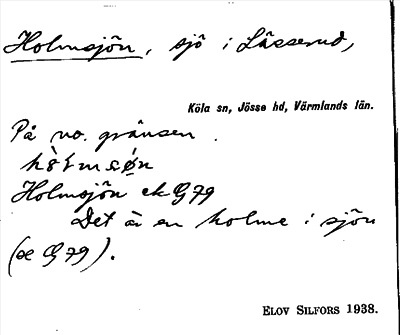 Holmsjön, sjö i Lässerud,
Köla sn, Jösse hd, Värmlands län.
På no. gränsen.
Holmsjön ek G 79
Det är en holme i sjön
(se G 79).
ELOV SILFORS 1938.